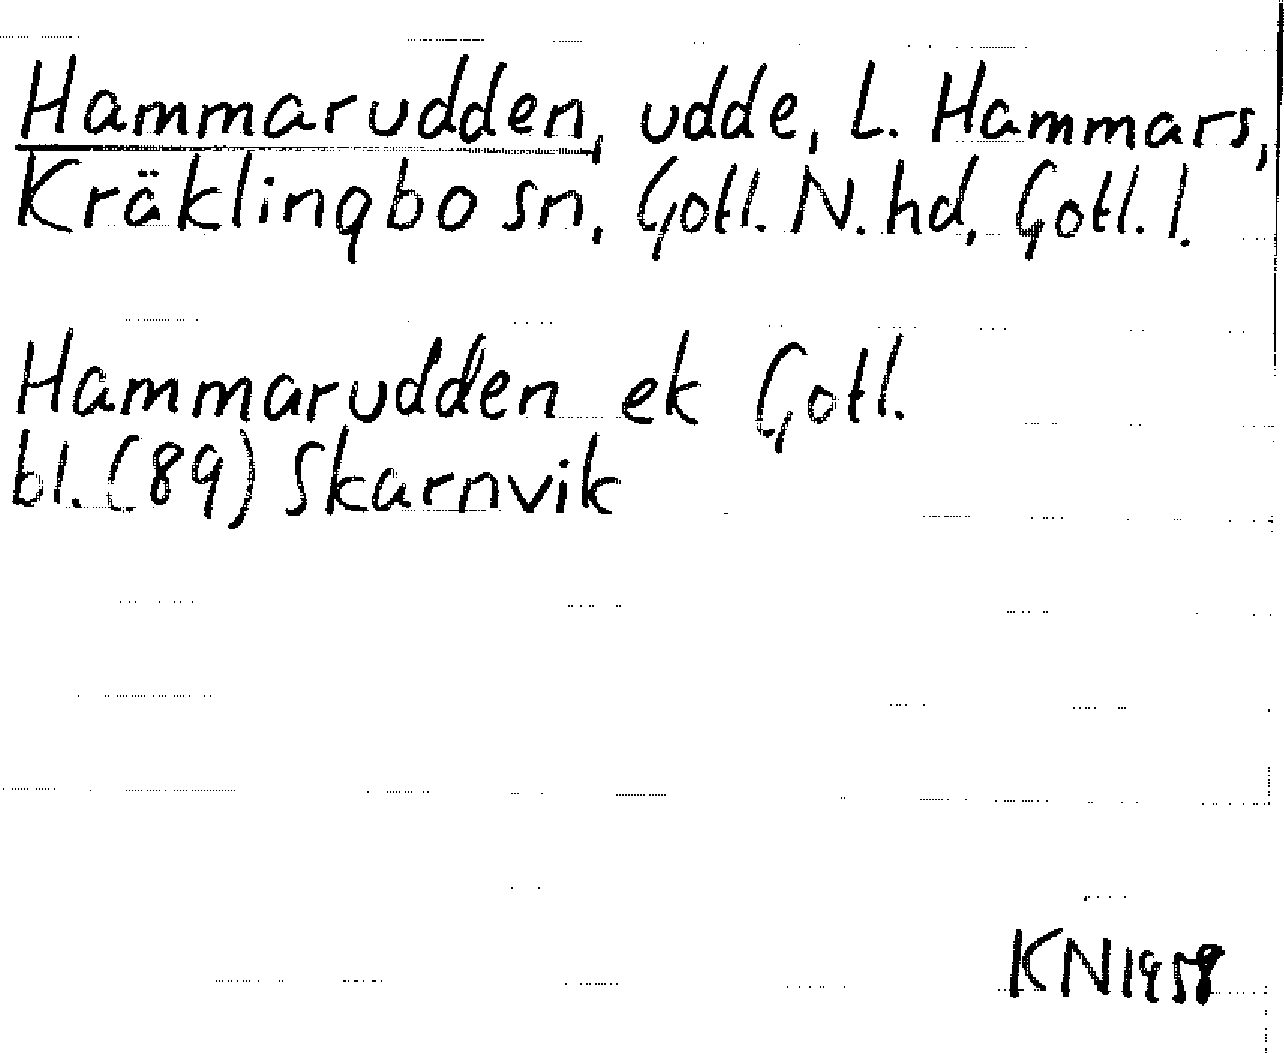 Hammarudden, udde, L. Hammars,
Kräklingbo sn, Gotl. N. hd, Gotl. l.
Hammarudden ek Gotl.
bl. (89) Skarnvik
KN 1958